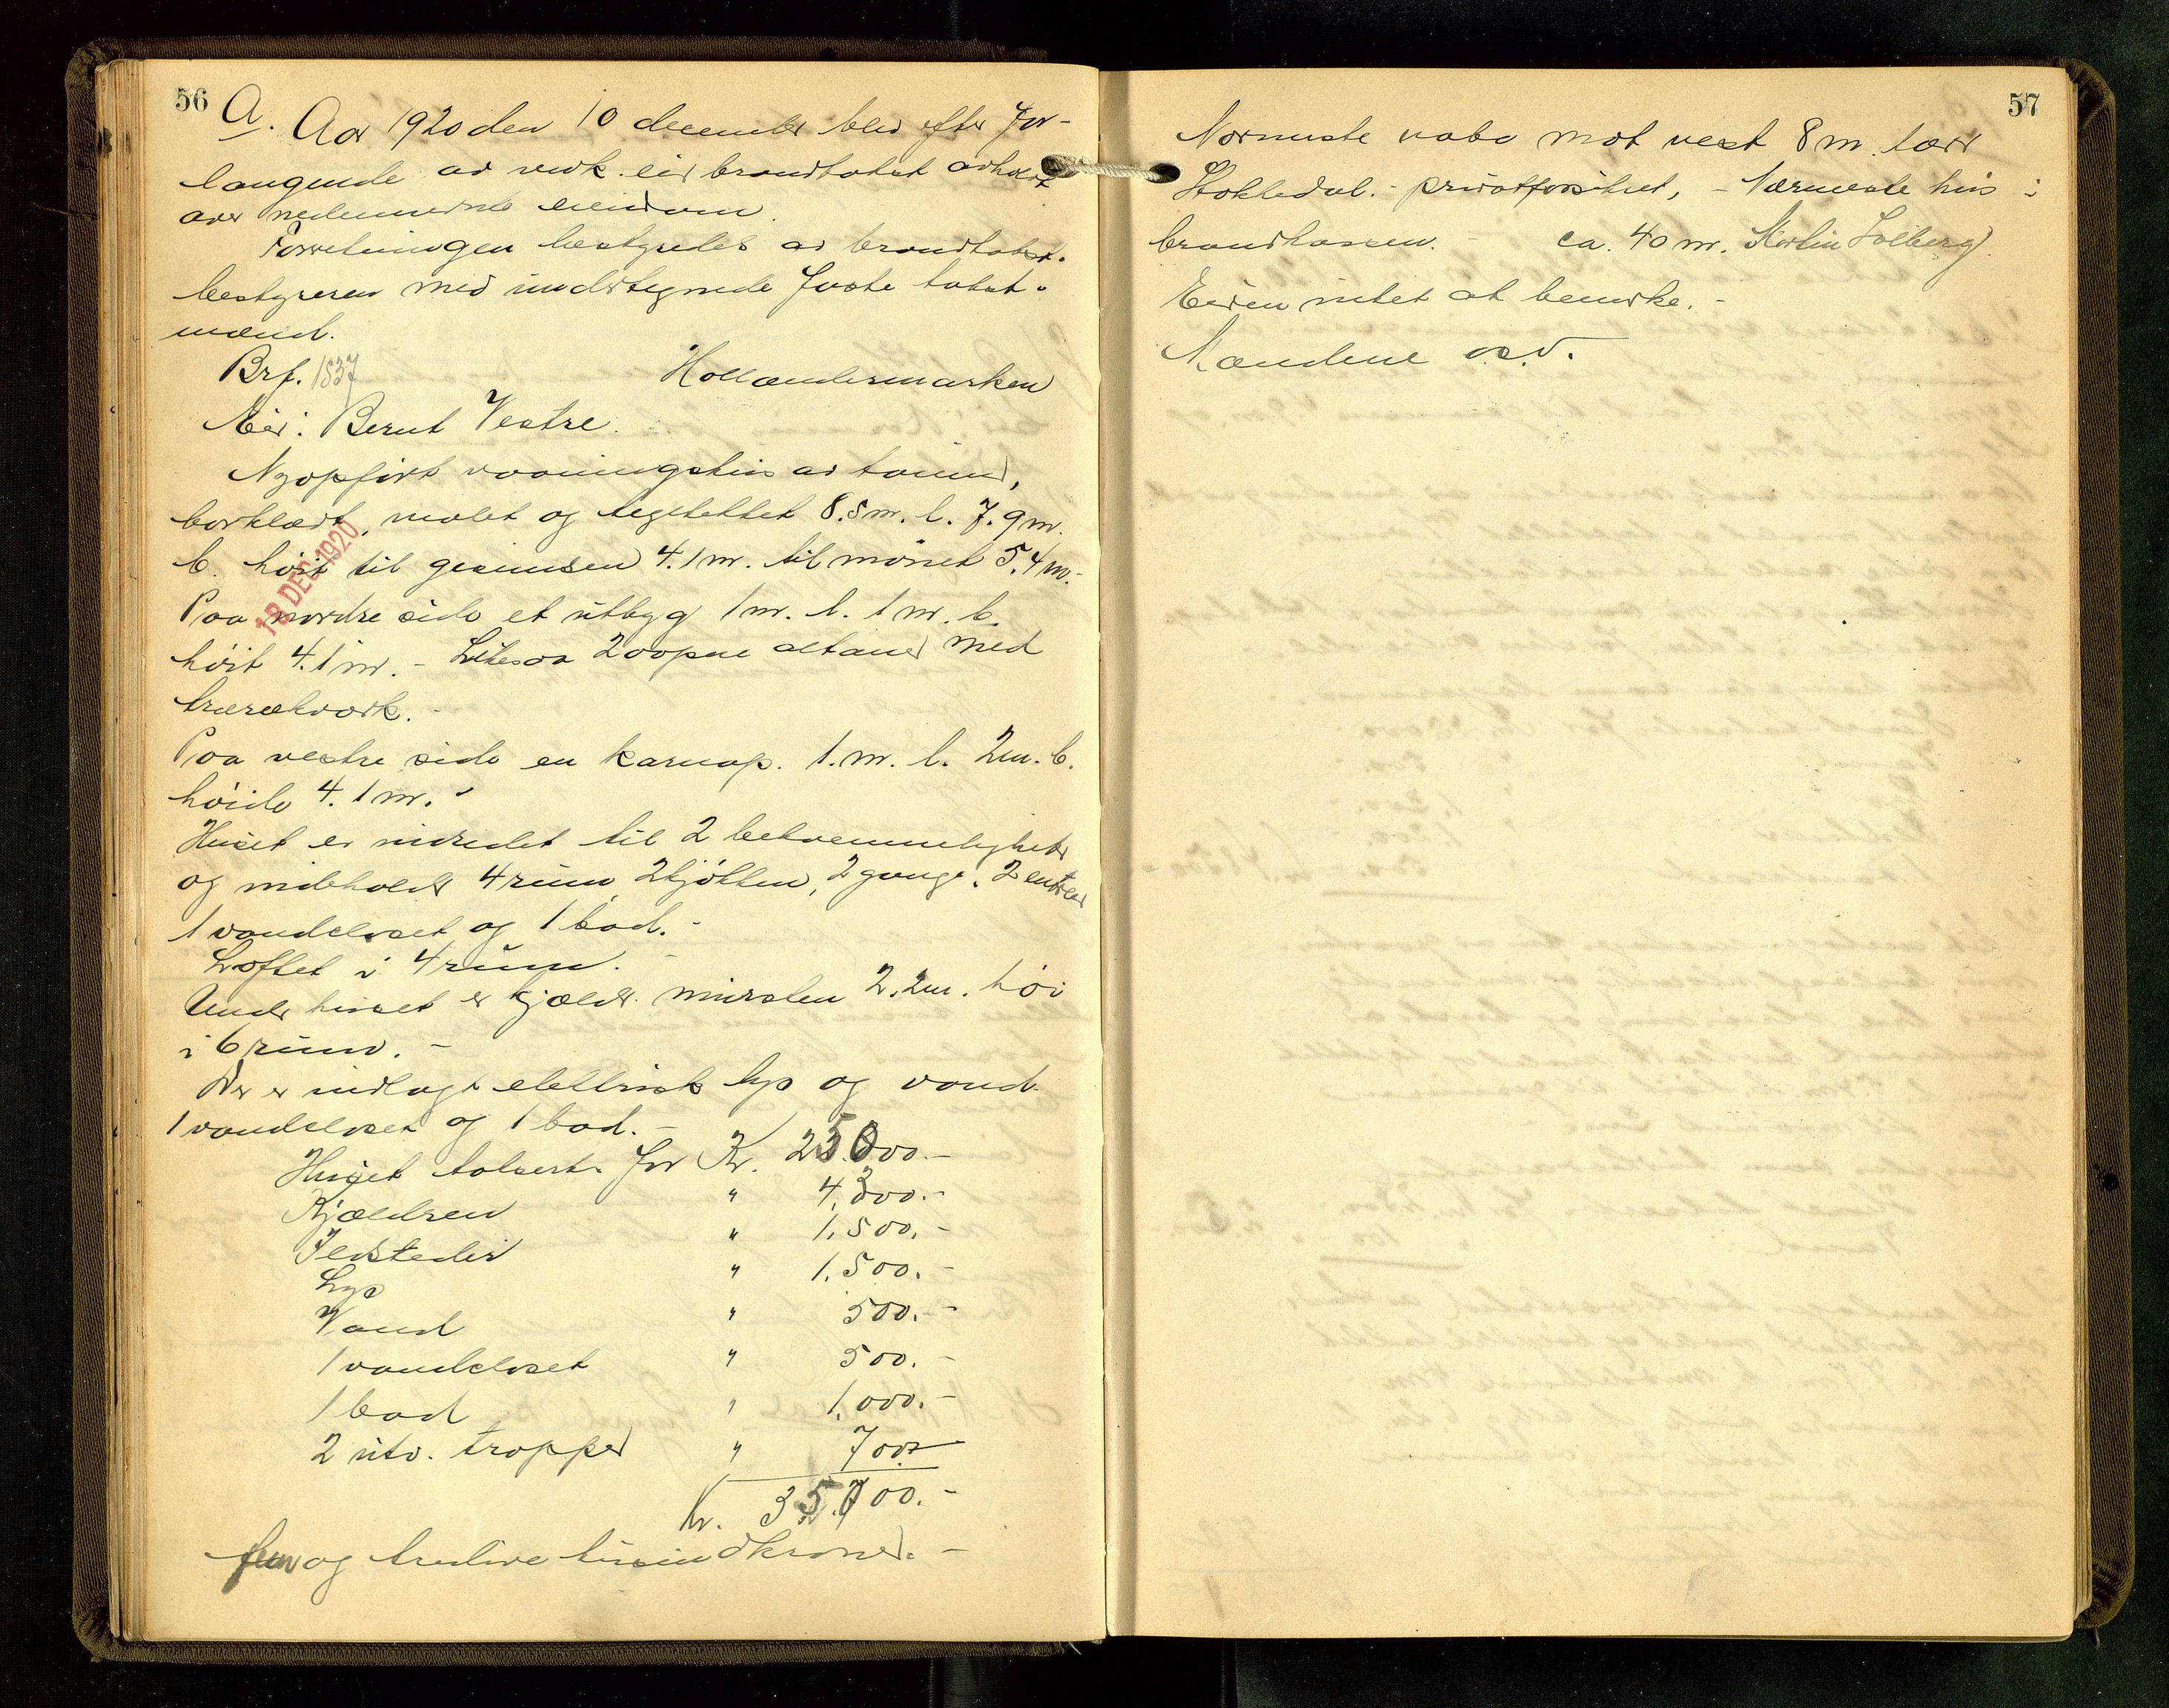 56
A. Aar 1920 den 10 december blev efter for-
langende av vedk. eier brandtakst avholdt
over nedennævnte eiendom.
Forretningen bestyredes av brandtakst-
bestyreren med undertegnede faste takst-
mænd.
Brf. 1537 Hollændermarken
Eier: Bernt Vestre.
Nyopført vaaningshus av tømmer,
bordklædt, malet og tegltekket 8.5 m. l. 7.9 m.
b. høit til gesimsen 4.1 m. til mønet 5.4 m.-
18 DEC. 1920
Paa nordre side et utbyg 1 m. l. 1 m. b.
høit 4.1 m. - Likesaa 2 aapne altaner med
trærækverk. -
Paa vestre side en karnap. 1. m. l. 2 m. b.
høide 4.1 m.
Huset er indredet til 2 bekvemmeligheter
og indeholder 4 rum, 2 kjøkken, 2 gange, 2 entreer
1 vandcloset og 1 bad. -
Loftet i 4 rum. -
Under huset er kjælder. mursten 2.2 m. høi
i 6 rum. -
Der er indlagt elektrisk lys og vand
1 vandcloset og 1 bad. -
Huset takseret for Kr. 25.000.-
Kjælderen " 4,300.-
Ildsteder " 1.500.-
Lys " 1.500.-
Vand " 500.-
1 vandcloset " 500.-
1 bad " 1,000.-
2 utv. trapper " 700.-
Kr. 35.000.-
fem og tredive tusind kroner. -
57
Nærmeste nabo mot vest 8 m. tærr
Stokkedal. - privatforsikret, - Nærmeste hus i
brandkassen. - ca. 40 m. Solberg
Eieren intet at bemerke. -
Mændene o.s.v.